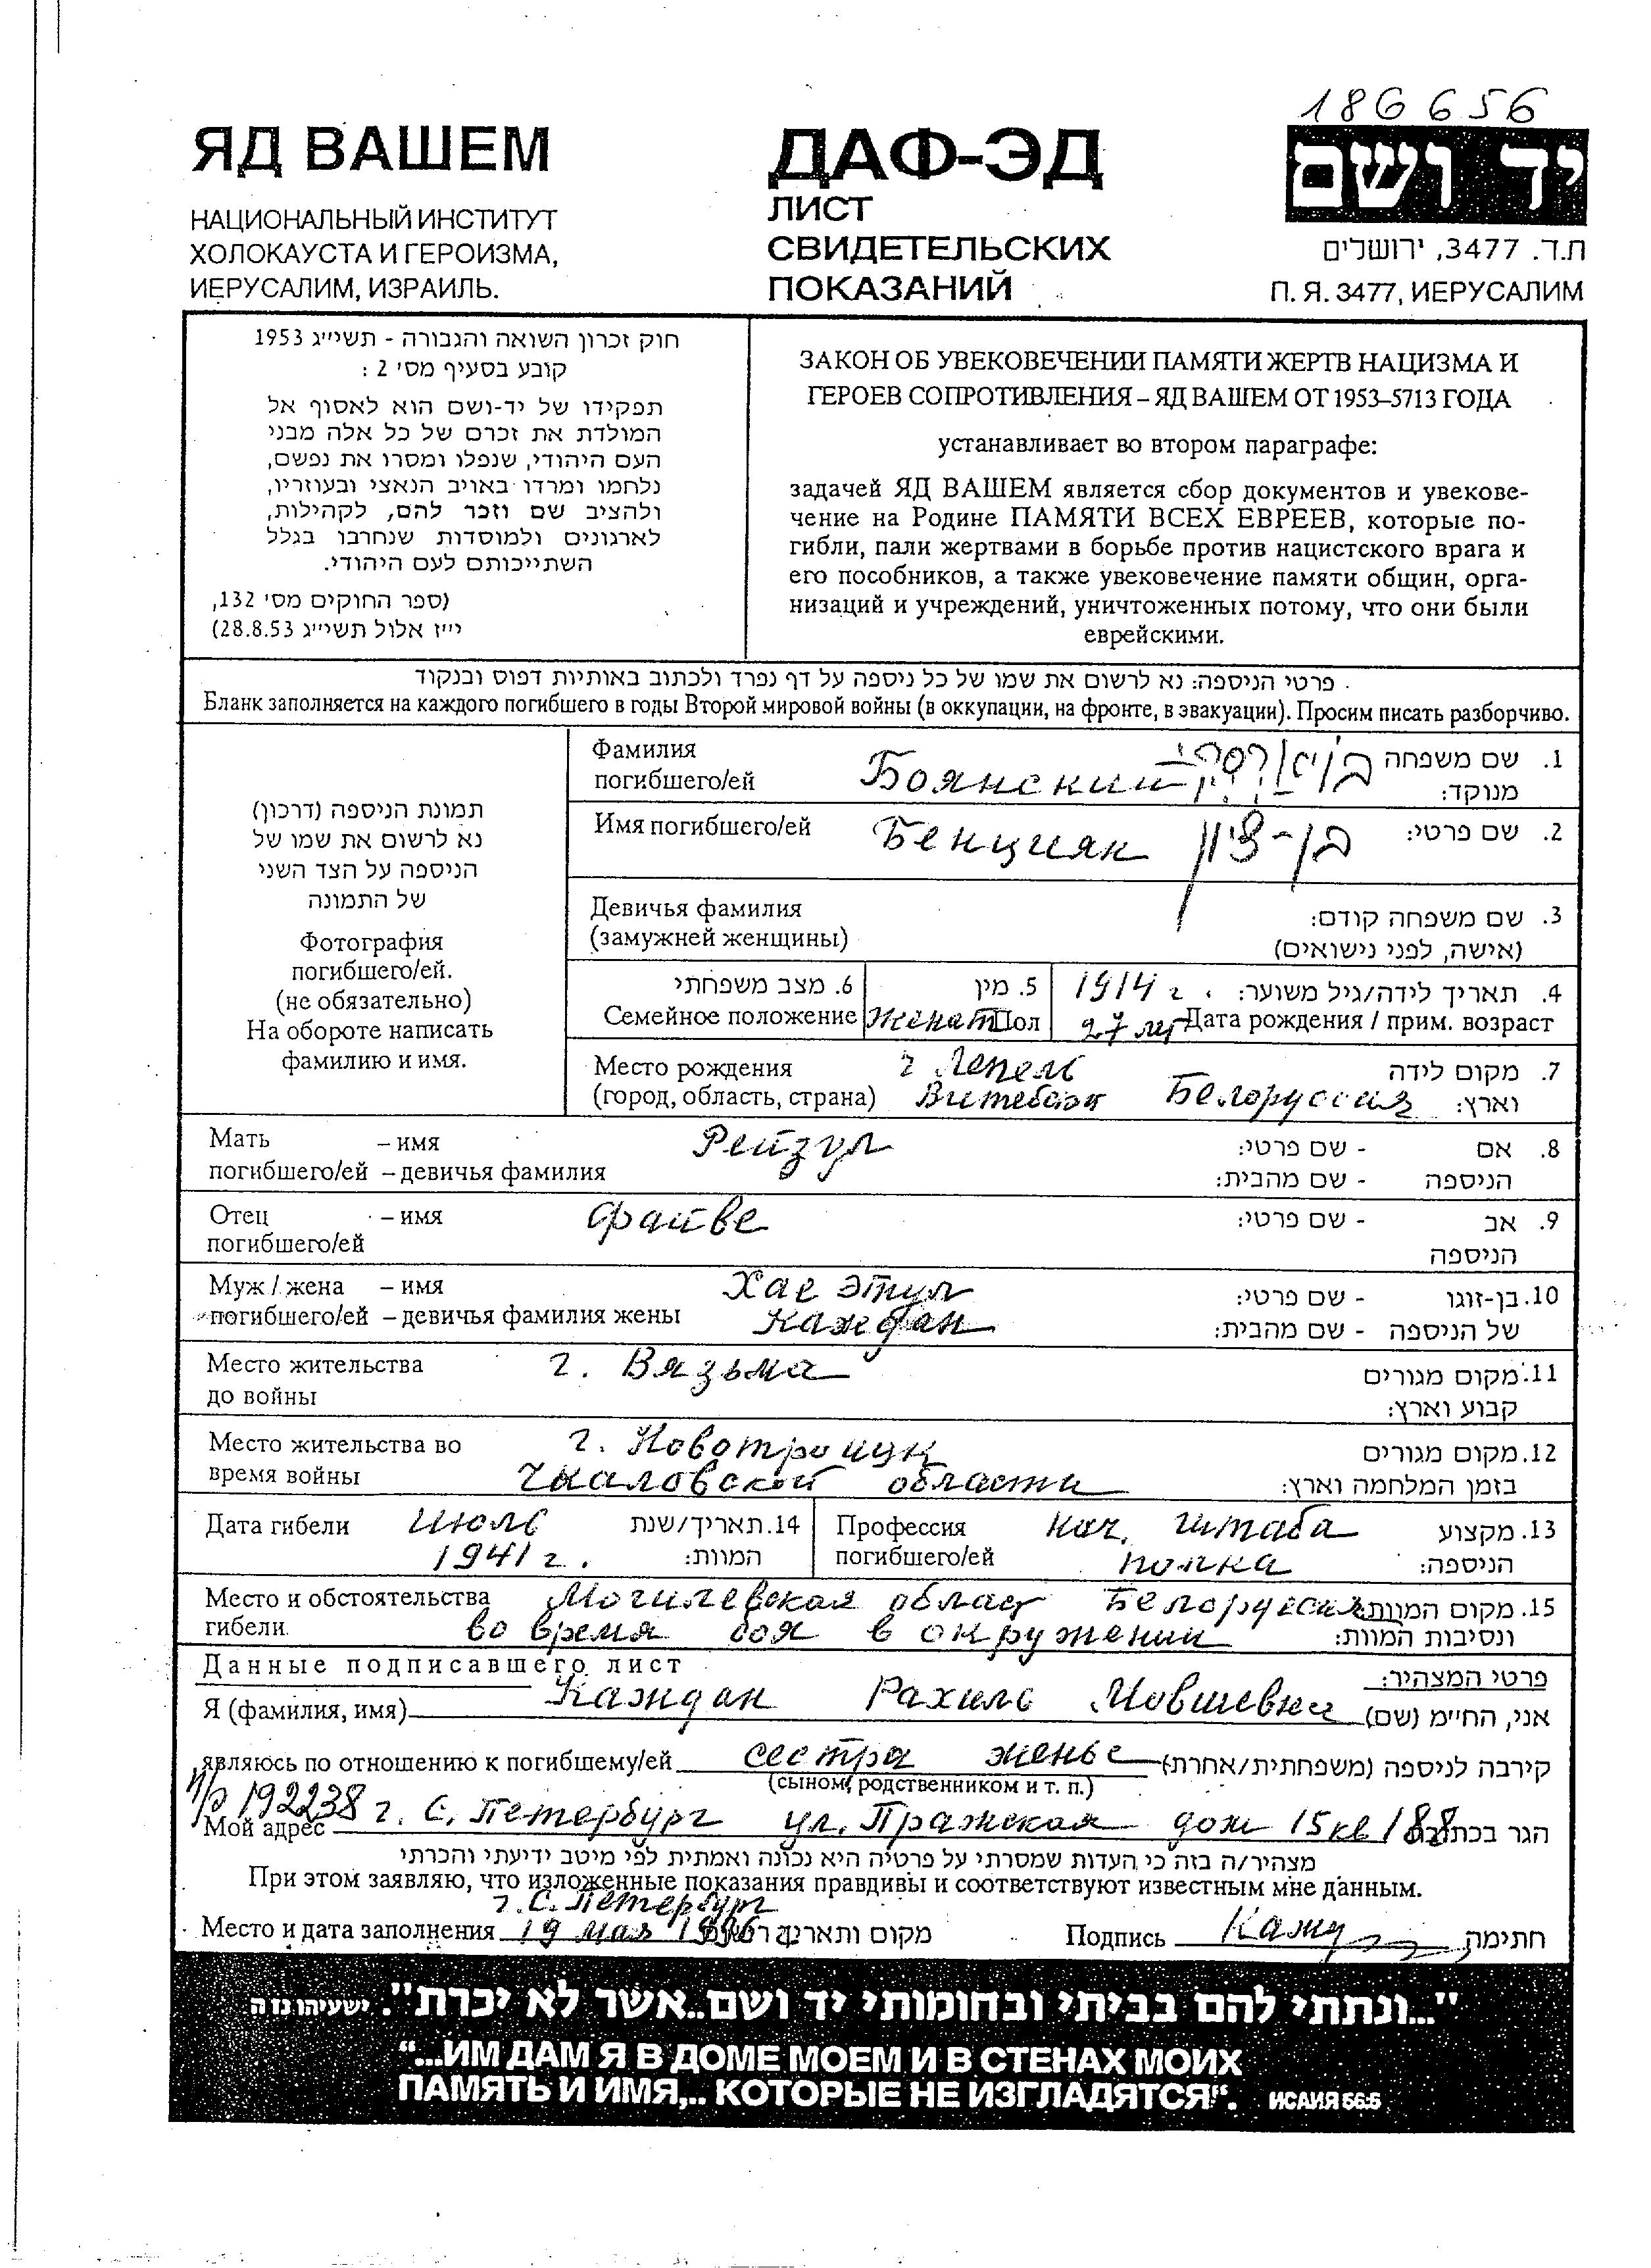 186656
ЯД ВАШЕМ
НАЦИОНАЛЬНЫЙ ИНСТИТУТ
ХОЛОКАУСТА И ГЕРОИЗМА,
ИЕРУСАЛИМ, ИЗРАИЛЬ.
ДАФ-ЭД
ЛИСТ
СВИДЕТЕЛЬСКИХ
ПОКАЗАНИЙ
יד ושם
ת.ד. 3477, ירושלים
П. Я. 3477, ИЕРУСАЛИМ
חוק זכרון השואה והגבורה - תשי״ג 1953
קובע בסעיף מס׳ 2 :
תפקידו של יד-ושם הוא לאסוף אל
המולדת את זכרם של כל אלה מבני
העם היהודי, שנפלו ומסרו את נפשם,
נלחמו ומרדו באויב הנאצי ובעוזריו,
ולהציב שם וזכר להם, לקהילות,
לארגונים ולמוסדות שנחרבו בגלל
השתייכותם לעם היהודי.
(ספר החוקים מס׳ 132,
י״ז אלול תשי״ג 28.8.53)
ЗАКОН ОБ УВЕКОВЕЧЕНИИ ПАМЯТИ ЖЕРТВ НАЦИЗМА И
ГЕРОЕВ СОПРОТИВЛЕНИЯ – ЯД ВАШЕМ ОТ 1953–5713 ГОДА
устанавливает во втором параграфе:
задачей ЯД ВАШЕМ является сбор документов и увекове-
чение на Родине ПАМЯТИ ВСЕХ ЕВРЕЕВ, которые по-
гибли, пали жертвами в борьбе против нацистского врага и
его пособников, а также увековечение памяти общин, орга-
низаций и учреждений, уничтоженных потому, что они были
еврейскими.
פרטי הניספה: נא לרשום את שמו של כל ניספה על דף נפרד ולכתוב באותיות דפוס ובנקוד
Бланк заполняется на каждого погибшего в годы Второй мировой войны (в оккупации, на фронте, в эвакуации). Просим писать разборчиво.
תמונת הניספה (דרכון)
נא לרשום את שמו של
הניספה על הצד השני
של התמונה
Фотография
погибшего/ей.
(не обязательно)
На обороте написать
фамилию и имя.
Фамилия
погибшего/ей Боянский
1. שם משפחה
מנוקד:
Имя погибшего/ей Бенциян בן-ציון 2. שם פרטי:
Девичья фамилия 3. שם משפחה קודם:
(замужней женщины) (אישה, לפני נישואים)
6. מצב משפחתי 5. מין 1914 г. 4. תאריך לידה/גיל משוער:
Семейное положение женат Пол 27 лет Дата рождения / прим. возраст
Место рождения г Лепель 7. מקום לידה
(город, область, страна) Витебская Белоруссия וארץ:
Мать – имя Рейзул 8. אם - שם פרטי:
погибшего/ей – девичья фамилия הניספה - שם מהבית:
Отец – имя Файве 9. אב - שם פרטי:
погибшего/ей הניספה
Муж / жена – имя Хае Этул 10. בן-זוגו - שם פרטי:
погибшего/ей – девичья фамилия жены Каждан של הניספה - שם מהבית:
Место жительства г. Вязьма 11. מקום מגורים
до войны קבוע וארץ:
Место жительства во г. Новотроицк 12. מקום מגורים
время войны Чкаловской области בזמן המלחמה וארץ:
Дата гибели июль 14. תאריך/שנת
1941 г. המוות:
Профессия нач. штаба 13. מקצוע
погибшего/ей полка הניספה:
Место и обстоятельства Могилевская област Белоруссия 15. מקום המוות
гибели. во время боя в окружении ונסיבות המוות:
Данные подписавшего лист פרטי המצהיר:
Я (фамилия, имя) Каждан Рахиль Мовшевна אני, החי״מ (שם)
являюсь по отношению к погибшему/ей сестра жены קירבה לניספה (משפחתית/אחרת)
(сыном, родственником и т. п.)
п/о 192238 г. С. Петербург ул. Пражская дом 15 кв 188
Мой адрес הגר בכתובת
מצהיר/ה בזה כי העדות שמסרתי על פרטיה היא נכונה ואמתית לפי מיטב ידיעתי והכרתי
При этом заявляю, что изложенные показания правдивы и соответствуют известным мне данным.
г. С. Петербург
Место и дата заполнения 19 мая 1996 г מקום ותאריך רישום Подпись חתימה
"...ונתתי להם בביתי ובחומותי יד ושם..אשר לא יכרת". ישעיהו נו ה
“...ИМ ДАМ Я В ДОМЕ МОЕМ И В СТЕНАХ МОИХ
ПАМЯТЬ И ИМЯ,.. КОТОРЫЕ НЕ ИЗГЛАДЯТСЯ“. ИСАИЯ 56:5